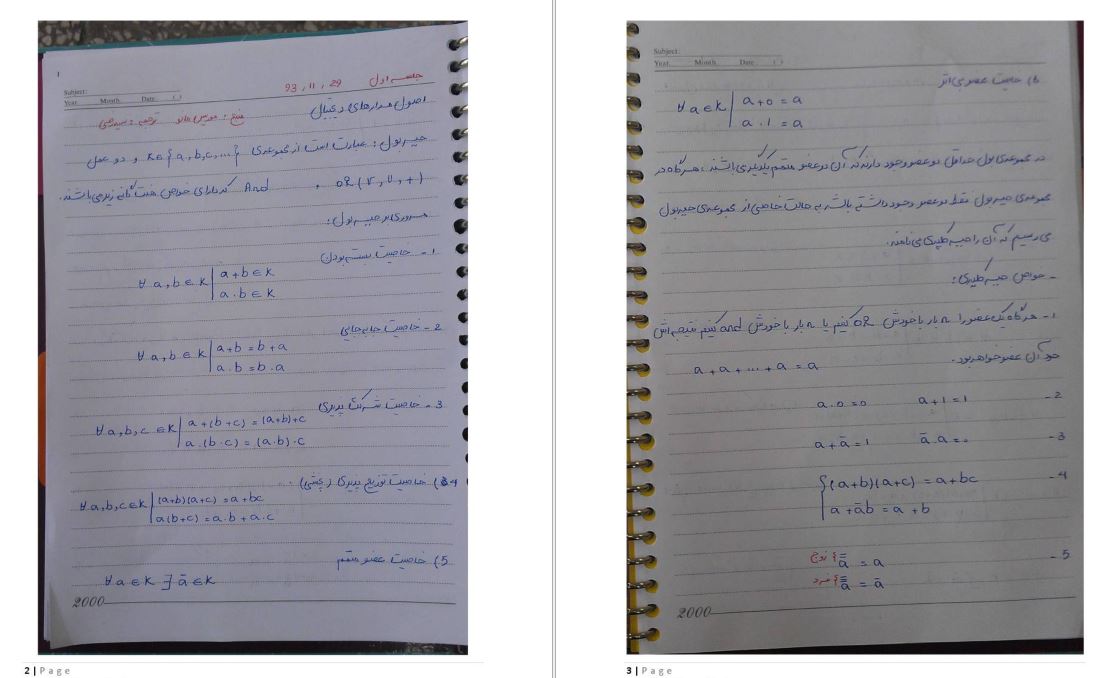 1
Subject:
Year. Month. Date. ( )
جلسه اول 93, 11, 29
اصول مدارهای دیجیتال
منبع: موریس مانو ترجمه:
جبر بول: عبارت است از مجموعه‌ی K∈{a,b,c,...} و دو عمل
OR(∨,∪,+) و And که دارای خواص هفت گانه زیر می‌باشند.
مروری بر جبر بول:
1- خاصیت بسته بودن
∀ a,b ∈ K | a+b ∈ K
a.b ∈ K
2- خاصیت جابه‌جایی
∀ a,b ∈ K | a+b = b+a
a.b = b.a
3- خاصیت شرکت پذیری
∀ a,b,c ∈ K | a+(b+c) = (a+b)+c
a.(b.c) = (a.b).c
4) خاصیت توزیع پذیری (پخشی)
∀ a,b,c ∈ K | (a+b)(a+c) = a+bc
a(b+c) = a.b + a.c
5) خاصیت عضو متمم
∀ a ∈ K ∃ ā ∈ K
2000
2 | Page
Subject:
Year. Month. Date. ( )
6) خاصیت عضو بی اثر
∀ a ∈ K | a+0 = a
a.1 = a
در مجموعه‌ی بول حداقل دو عضو وجود دارند که آن دو عضو متمم یکدیگر می‌باشند، هرگاه در
مجموعه‌ی جبر بول فقط دو عضو وجود داشته باشد به حالت خاصی از مجموعه‌ی جبر بول
می‌رسیم که آن را جبر کلیدی می‌نامند.
- خواص جبر کلیدی:
1- هرگاه یک عضو را n بار با خودش OR کنیم یا n بار با خودش and کنیم نتیجه‌اش
خود آن عضو خواهد بود. a+a+...+a = a
2- a.0=0 a+1=1
3- a+ā=1 ā.a=0
4- {(a+b)(a+c) = a+bc
a+āb = a+b
5- زوج a̿ = a
فرد a̿̄ = ā
2000
3 | Page